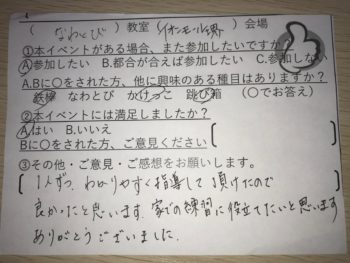 ( なわとび ) 教室 (イオンモール堺) 会場
①本イベントがある場合、また参加したいですか?
A.参加したい B.都合が合えば参加したい C.参加しない
A.Bに○をされた方、他に興味のある種目はありますか?
鉄棒 なわとび かけっこ 跳び箱 (○でお答え)
②本イベントには満足しましたか?
A.はい B.いいえ
Bに○をされた方、ご意見ください
③その他・ご意見・ご感想をお願いします。
1人ずつ、わかりやすく指導して頂けたので
良かったと思います。家での練習に役立てたいと思います
ありがとうございました。